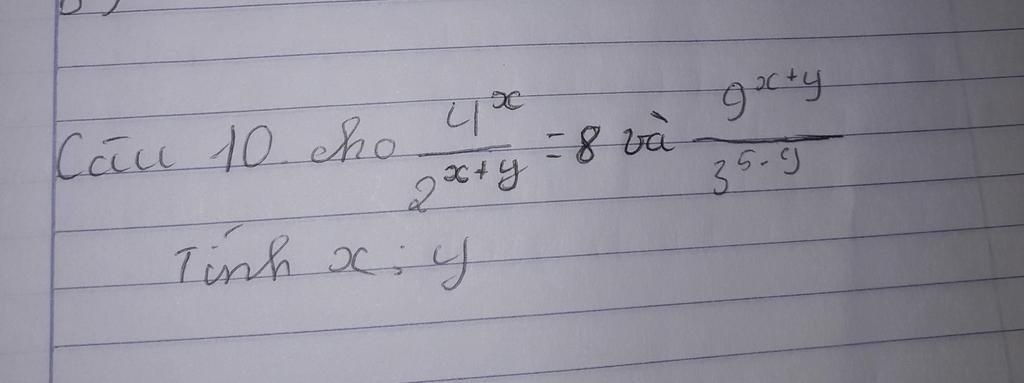 Câu 10. cho \frac{4^x}{2^{x+y}} = 8 và \frac{9^{x+y}}{3^{5.y}}
Tính x; y